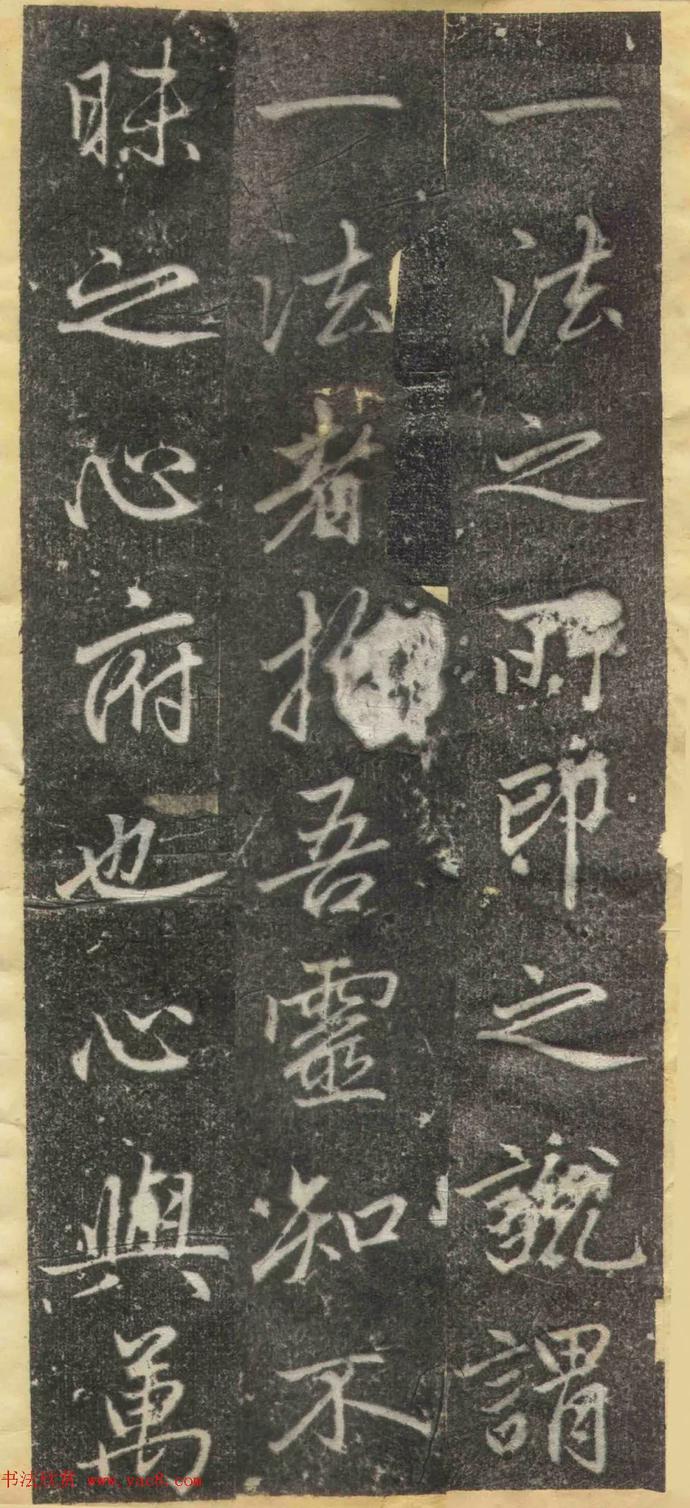 一法之所印之說謂
一法者指吾靈知不
昧之心府也心與萬
书法欣赏 www.yac8.com